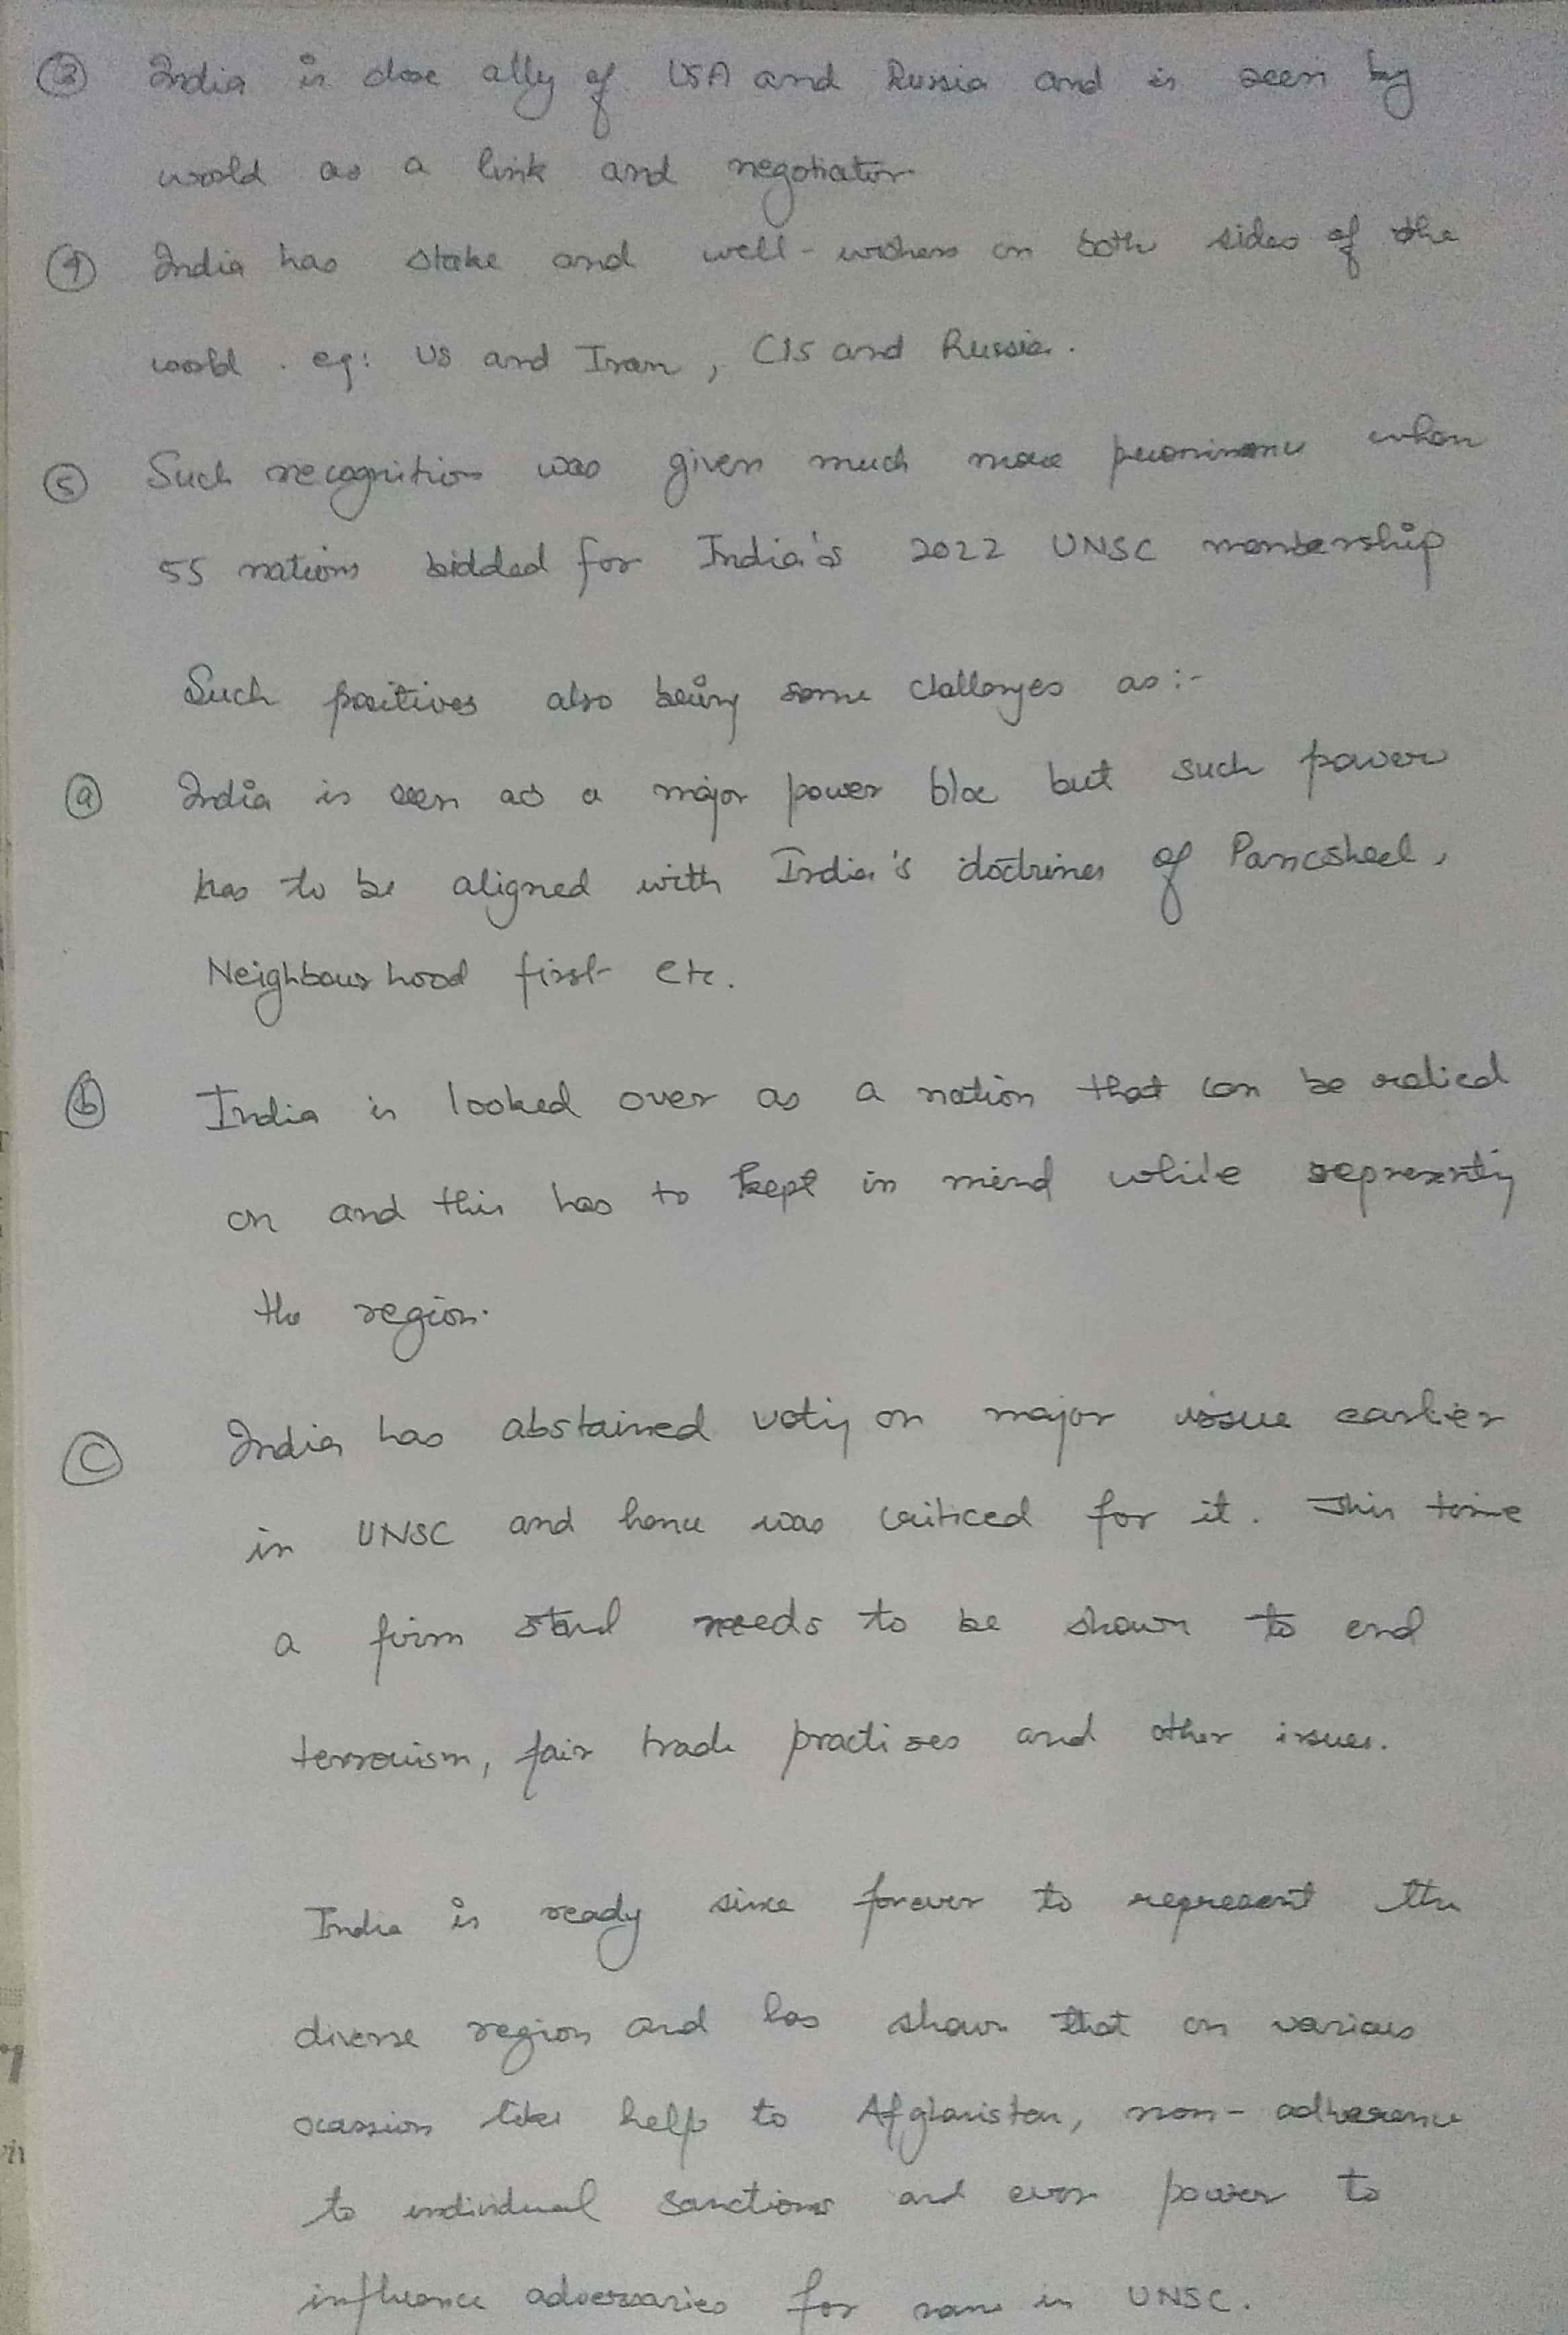 ③ India is close ally of USA and Russia and is seen by
world as a link and negotiator
④ India has stake and well-wishers on both sides of the
world. eg: US and Iran, CIS and Russia.
⑤ Such recognition was given much more prominence when
55 nations bidded for India's 2022 UNSC membership
Such positives also bring some challenges as:-
ⓐ India is seen as a major power bloc but such power
has to be aligned with India's doctrines of Pancsheel,
Neighbourhood first etc.
ⓑ India is looked over as a nation that can be relied
on and this has to kept in mind while representing
the region.
ⓒ India has abstained voting on major issue earlier
in UNSC and hence was criticed for it. This time
a firm stand needs to be shown to end
terrorism, fair trade practises and other issues.
India is ready since forever to represent the
diverse region and has shown that on various
ocassion like help to Afghanistan, non-adherence
to individual sanctions and even power to
influence adversaries for same in UNSC.